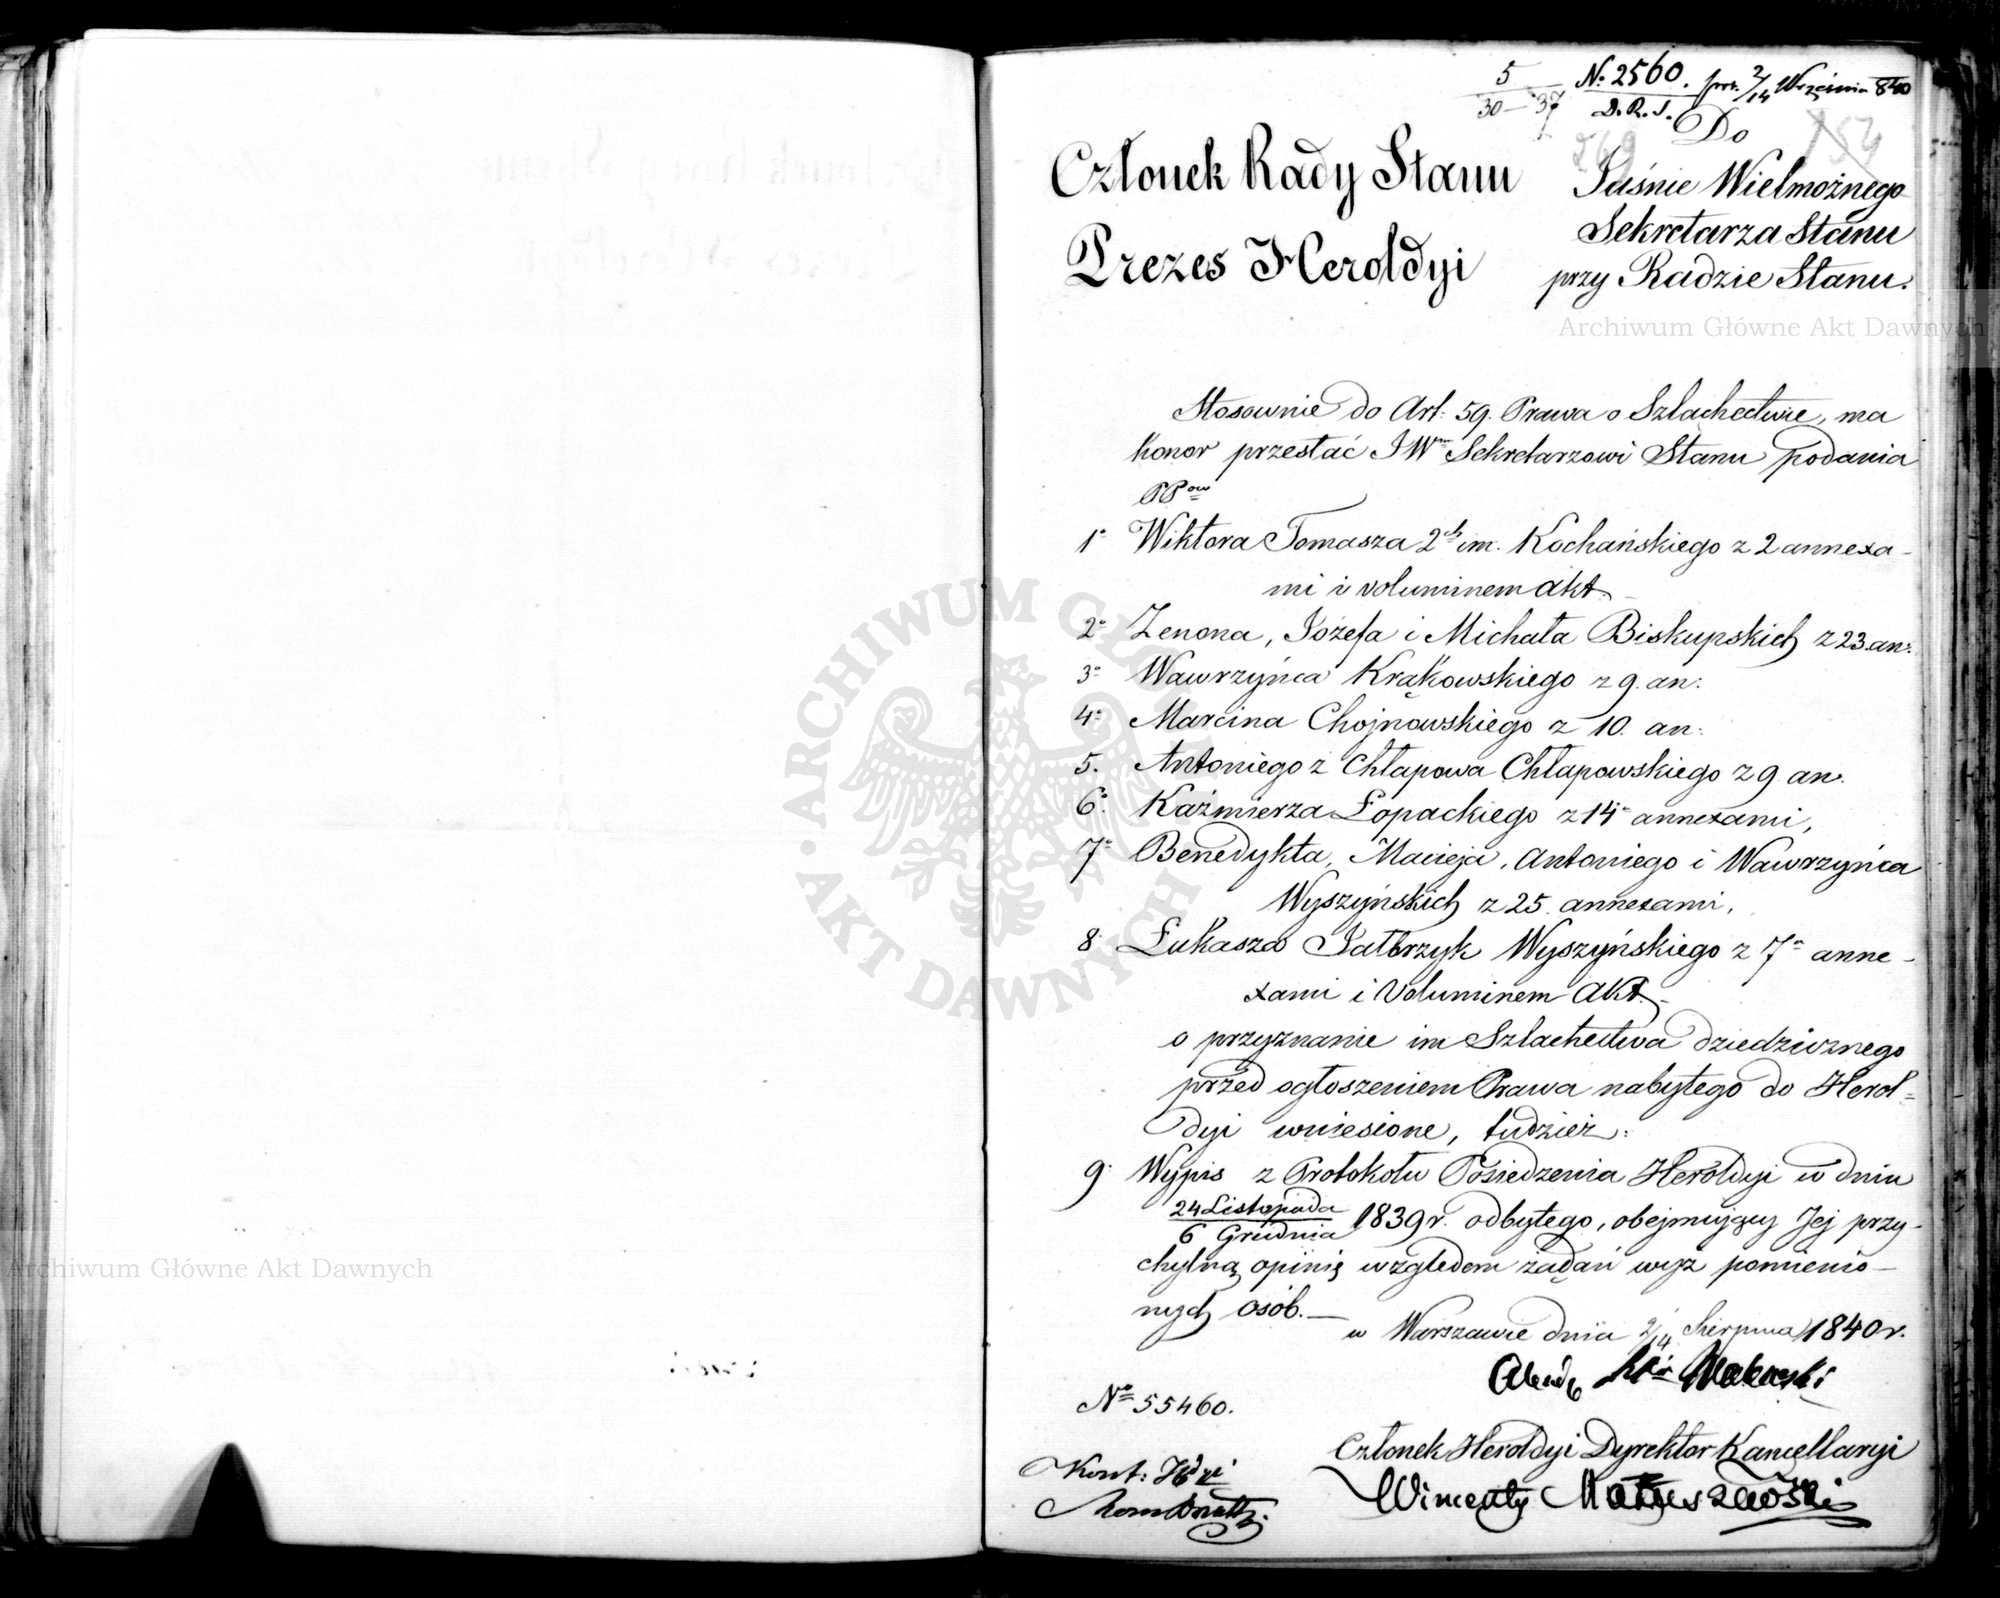 5
30 — 37
№ 2560. prez. 2/14 Września 840
D. R. S.
Do
Członek Rady Stanu
Prezes Heroldyi
Jaśnie Wielmożnego
Sekretarza Stanu
przy Radzie Stanu.
Archiwum Główne Akt Dawnych
Stosownie do Art: 59. Prawa o Szlachectwie, ma
honor przesłać JWmu Sekretarzowi Stanu podania
PPow
1o Wiktora Tomasza 2ch im. Kochańskiego z 2 annexa-
mi i voluminem akt.
2o Zenona, Józefa i Michała Biskupskich z 23. an:
3o Wawrzyńca Krąkowskiego z 9. an:
4o Marcina Chojnowskiego z 10. an:
5. Antoniego z Chłapowa Chłapowskiego z 9 an.
6o Kaźmierza Łopackiego z 14a annexami,
7o Benedykta, Macieja, Antoniego i Wawrzyńca
Wyszyńskich z 25. annexami,
8. Łukasza Wyszyńskiego z 7a anne-
xami i Voluminem Akt.
o przyznanie im Szlachectwa dziedzicznego
przed ogłoszeniem Prawa nabytego do Herol=
dyi wniesione, tudzież:
9. Wypis z Protokołu Posiedzenia Heroldyi w dniu
24 Listopada
6 Grudnia
1839 r. odbytego, obejmujący Jej przy-
chylną opinię względem żądań wyż pomienio-
nych osób. —
w Warszawie dnia 2/14 Sierpnia 1840 r.
No 55460.
Członek Heroldyi Dyrektor Kancellaryi
Wincenty Matuszewski
Kont:
ARCHIWUM GŁÓWNE AKT DAWNYCH
Archiwum Główne Akt Dawnych